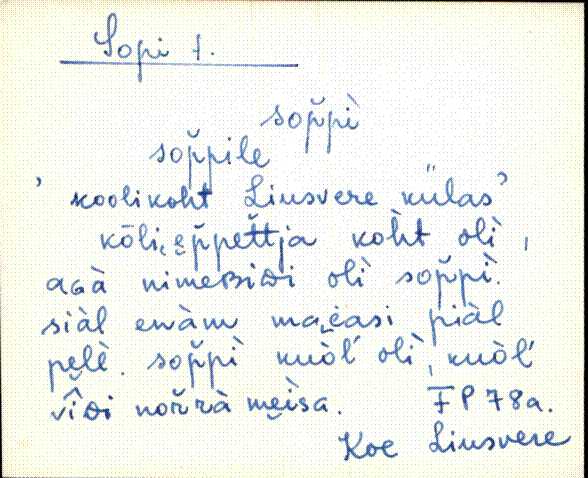 Sopi t.
sop̆pì
sop̆pile
’koolikoht Liusvere külas’
kōli, ep̆pet̆tja koh̀t olì,
agà nimeBiDi olì sop̆pì.
siàl enàm maĕasi piàl
pelè. sop̆pì kuòl' olì, kuòl'
vîDi nor̆rà meìsa. FP 78a.
Koe Liusvere